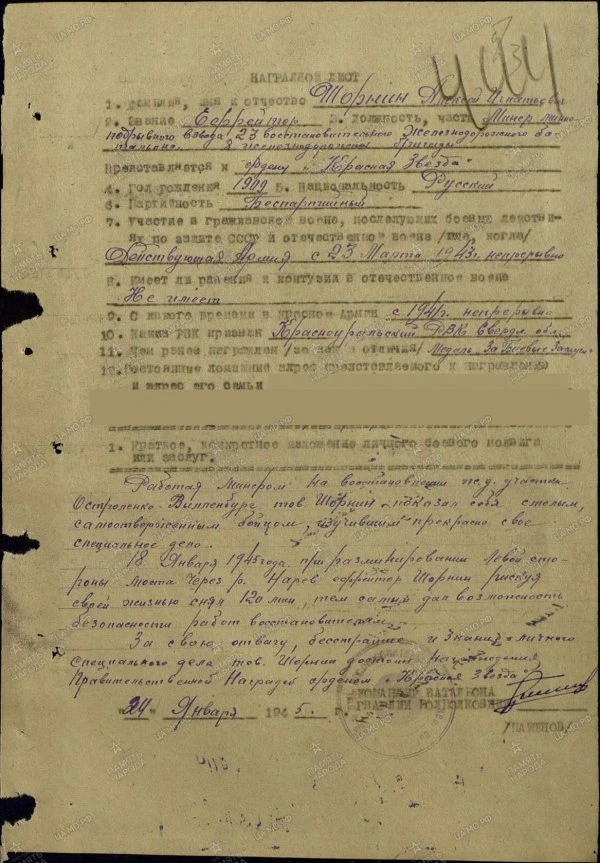 НАГРАДНОЙ ЛИСТ
1. Фамилия, имя и отчество Шорнин Алексей Игнатович
2. Звание Ефрейтор 3. Должность, часть Минер минно-
подрывного взвода 23 восстановительного железнодорожного ба-
тальона железнодорожной бригады
Представляется к ордену "Красная Звезда"
4. Год рождения 1909 5. Национальность Русский
6. Партийность Беспартийный
7. Участие в гражданской войне, последующих боевых действи-
ях по защите СССР и отечественной войне /где, когда/
Действующая Армия с 23 Марта 1943г. непрерывно
8. Имеет ли ранения и контузии в отечественной войне
Не имеет
9. С какого времени в Красной Армии с 1941г. непрерывно
10. Каким РВК призван Красноуральский РВК Свердл. обл.
11. Чем ранее награжден /за какие отличия/ Медаль "За Боевые Заслуги"
12. Постоянный домашний адрес представляемого к награждению
и адрес его семьи
1. Краткое, конкретное изложение личного боевого подвига
или заслуг.
Работая Минером на восстановлении ж.д. участка
Остроленко-Вилленбург тов. Шорнин показал себя смелым,
самоотверженным бойцом, изучившим прекрасно свое
специальное дело.
18 Января 1945 года при разминировании левой сто-
роны моста через р. Нарев ефрейтор Шорнин рискуя
своей жизнью снял 120 мин, тем самым дал возможность
безопасности работ восстановителям.
За свою отвагу, бесстрашие и знание личного
специального дела тов. Шорнин достоин награждения
Правительственной Наградой орденом "Красная Звезда"
КОМАНДИР БАТАЛЬОНА
"24" Января 1945 г. ГВАРДИИ ПОДПОЛКОВНИК
/ВАЖЕНОВ/